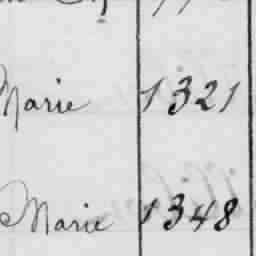 Marie 1321
Marie 1348